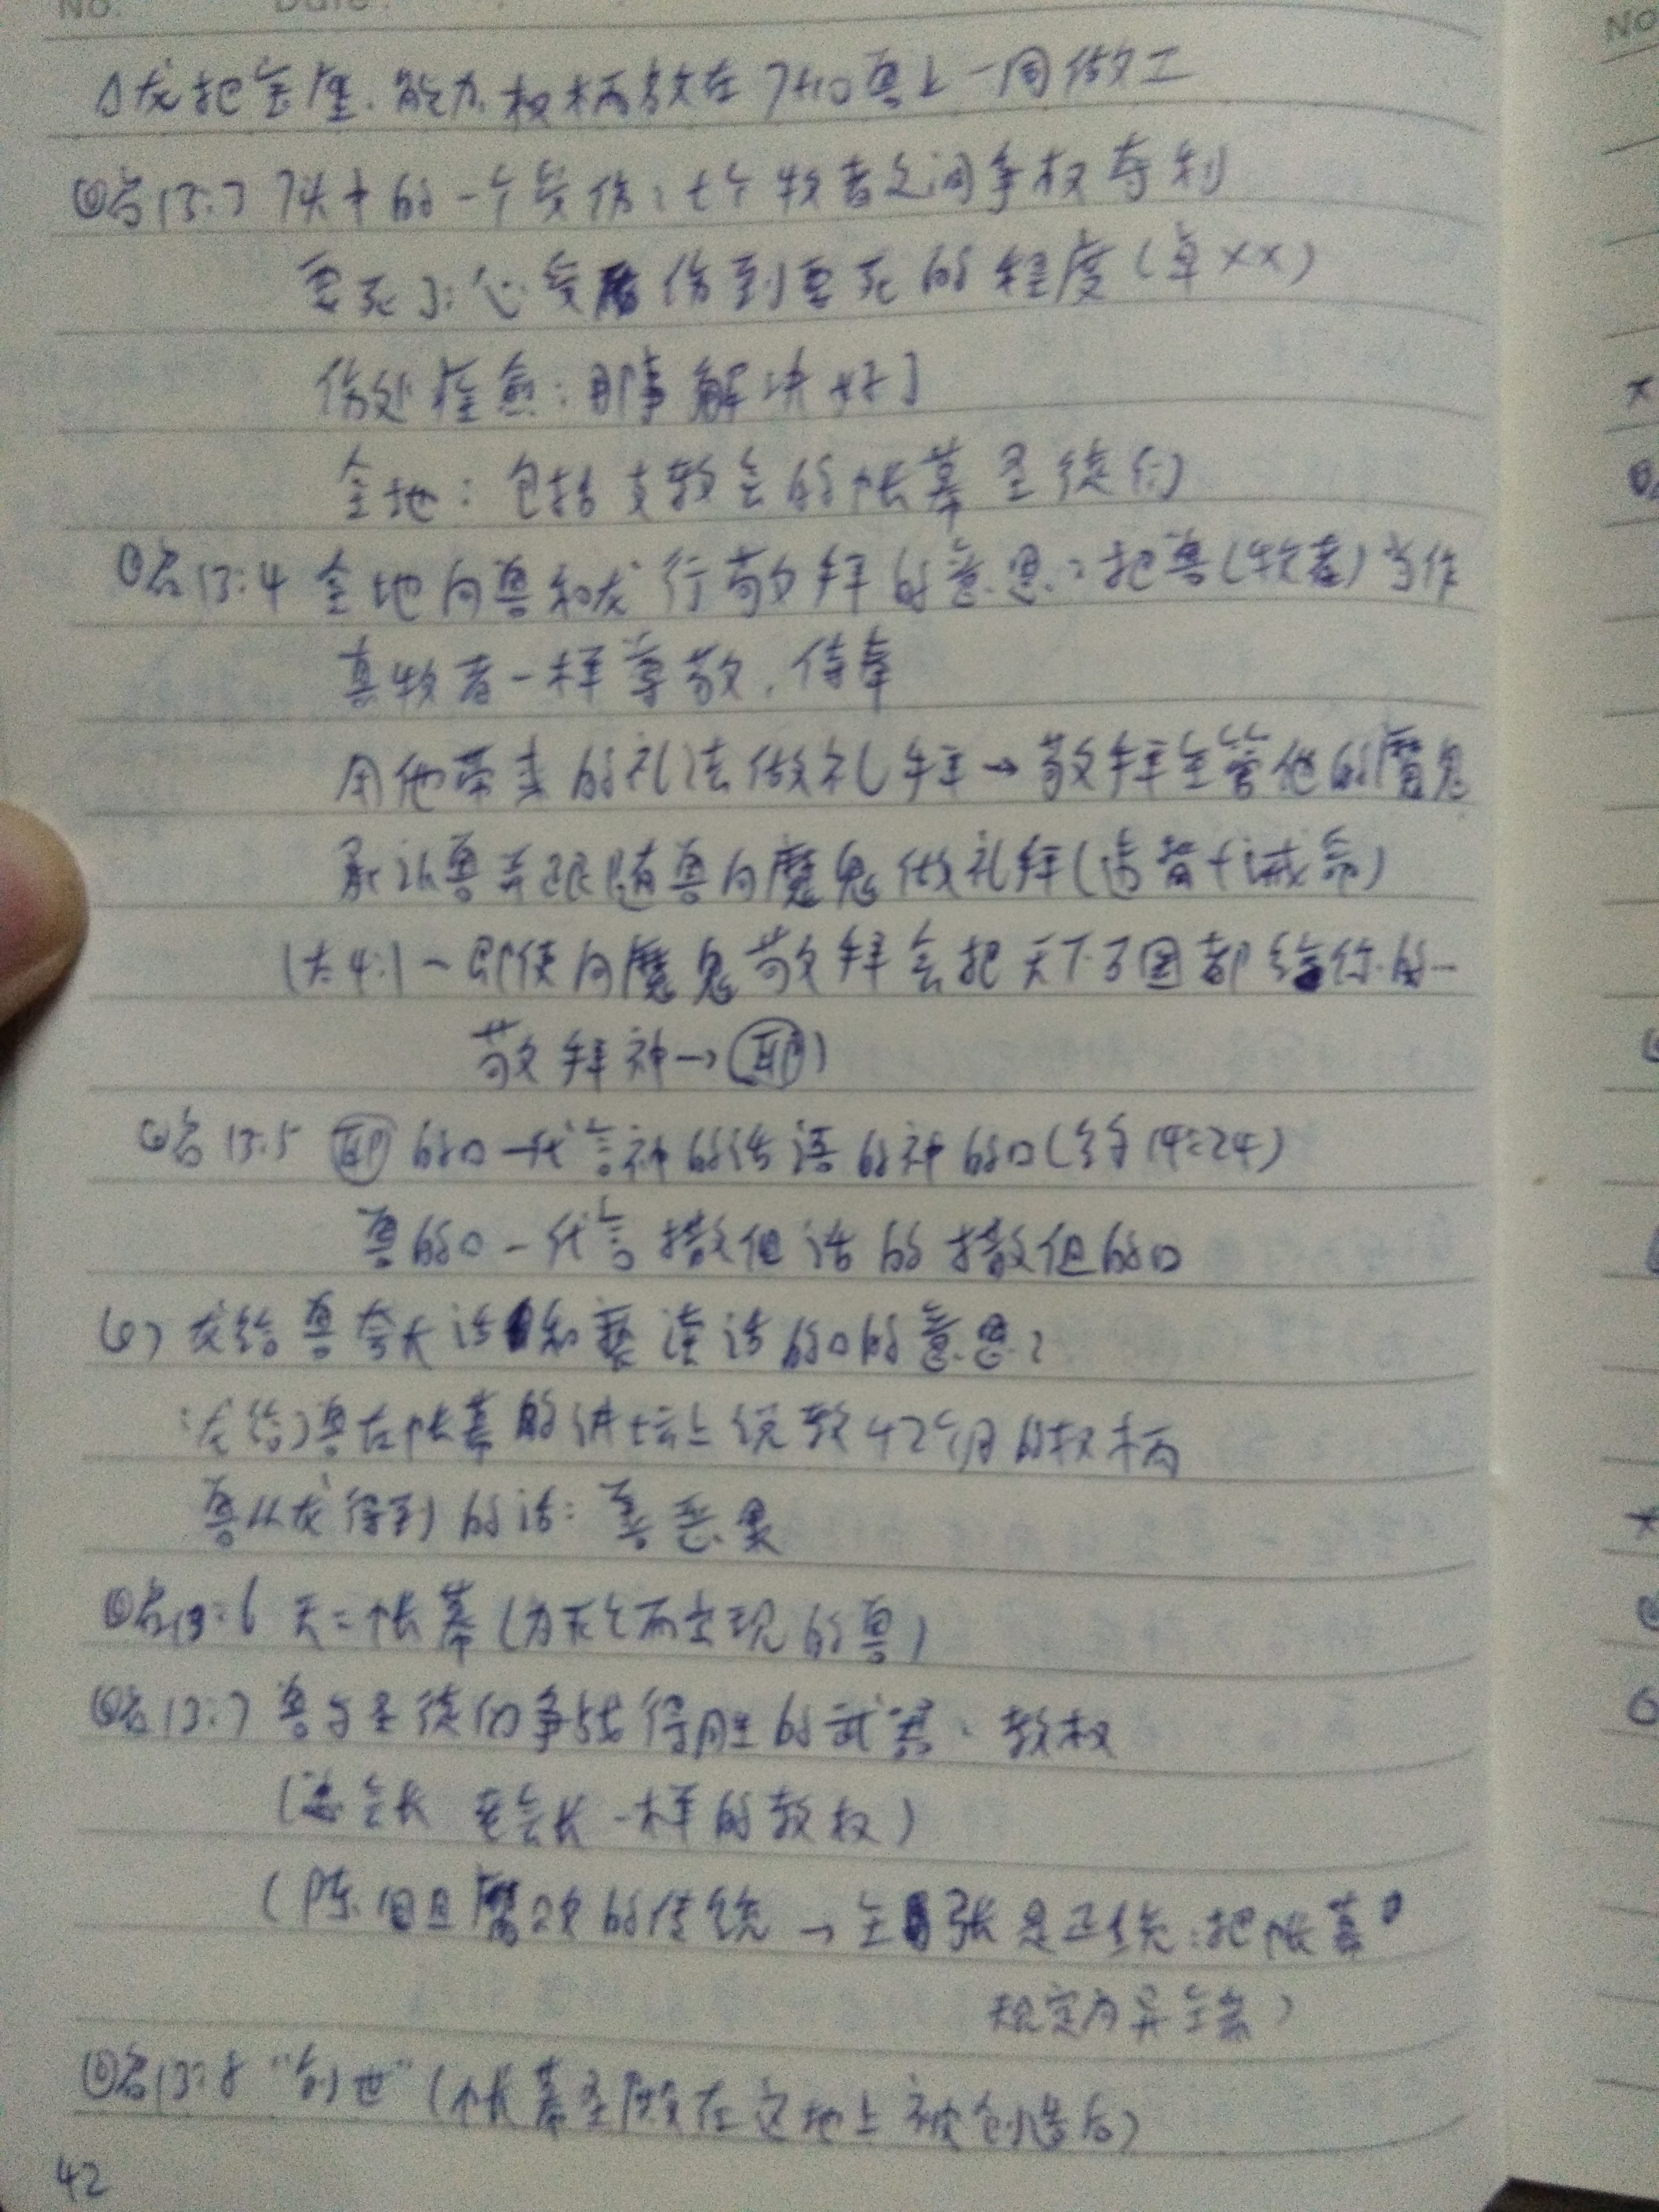 No. Date
△龙把宝座.能力.权柄放在7头10角兽上一同做工
启13:3 7头中的一个受伤:七个牧者之间争权夺利
要死了:心受伤到要死的程度(卓××)
伤处痊愈:那事解决好了
全地:包括支教会的帐幕圣徒们
启13:4 全地向兽和龙行敬拜的意思:把兽(牧者)当作
真牧者一样尊敬.侍奉
用他带来的礼法做礼拜→敬拜主管他的魔鬼
承认兽并跟随兽向魔鬼做礼拜(违背十诫命)
(太4:1~即使向魔鬼敬拜会把天下万国都给你的~
敬拜神→)
启13:5 的口—代言神的话语的神的口(约14:24)
兽的口—代言撒但话的撒但的口
龙给兽夸大话和亵渎话的口的意思:
:龙给了兽在帐幕的讲坛上统教42个月的权柄
兽从龙得到的话:善恶果
启13:6 天=帐幕(为死亡而出现的兽)
启13:7 兽与圣徒们争战得胜的武器:教权
(总会长 老会长一样的教权)
(陈旧且腐败的传统→主张是正统:把帐幕
规定为异端)
启13:8 "创世"(帐幕圣殿在这地上被创造后)
42
NO